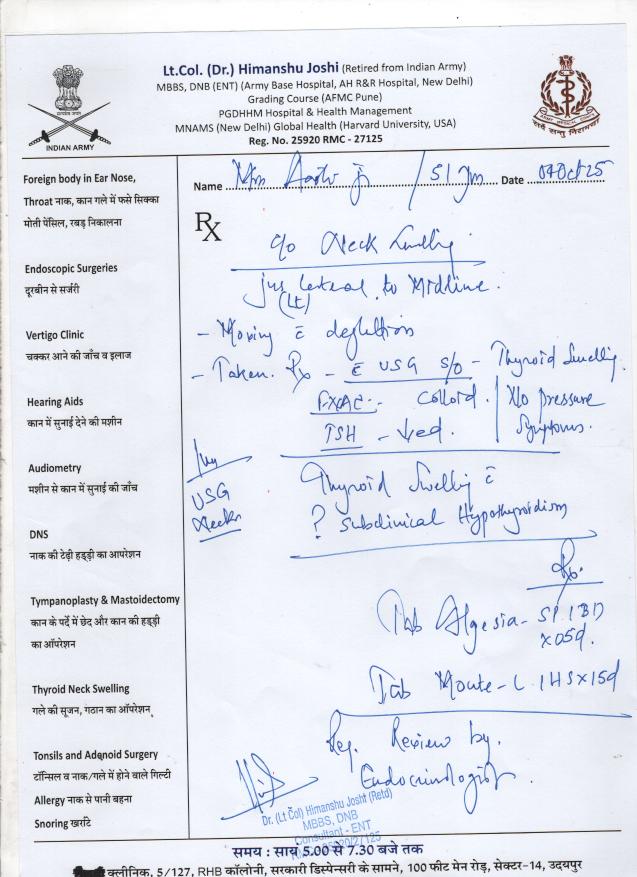 Lt.Col. (Dr.) Himanshu Joshi (Retired from Indian Army)
MBBS, DNB (ENT) (Army Base Hospital, AH R&R Hospital, New Delhi)
Grading Course (AFMC Pune)
PGDHHM Hospital & Health Management
MNAMS (New Delhi) Global Health (Harvard University, USA)
Reg. No. 25920 RMC - 27125
INDIAN ARMY
Name Mrs ji / 51 Date 04 Oct 25
Rx
c/o Neck Swelling
jus lateral to Midline.
(Lt)
- Moving c̄ deglution
- Taken Rx - c̄ USG s/o - Thyroid Swelling
FNAC - Colloid. No pressure
TSH - ed. Symptoms.
USG
Neck
Thyroid Swelling c̄
? Subclinical Hypothyroidism
Rx.
Tab Algesia - SP 1 BD
x 05d.
Tab Monte - L 1 HS x 15d
Review by
Endocrinologist.
Dr. (Lt Col) Himanshu Joshi (Retd)
MBBS, DNB
Consultant - ENT
Foreign body in Ear Nose,
Throat नाक, कान गले में फसे सिक्का
मोती पेंसिल, रबड़ निकालना
Endoscopic Surgeries
दूरबीन से सर्जरी
Vertigo Clinic
चक्कर आने की जाँच व इलाज
Hearing Aids
कान में सुनाई देने की मशीन
Audiometry
मशीन से कान में सुनाई की जाँच
DNS
नाक की टेढ़ी हड्डी का आपरेशन
Tympanoplasty & Mastoidectomy
कान के पर्दे में छेद और कान की हड्डी
का ऑपरेशन
Thyroid Neck Swelling
गले की सूजन, गठान का ऑपरेशन
Tonsils and Adenoid Surgery
टॉन्सिल व नाक/गले में होने वाले गिल्टी
Allergy नाक से पानी बहना
Snoring खर्राटे
समय : सायं 5.00 से 7.30 बजे तक
क्लीनिक, 5/127, RHB कॉलोनी, सरकारी डिस्पेन्सरी के सामने, 100 फीट मेन रोड़, सेक्टर-14, उदयपुर